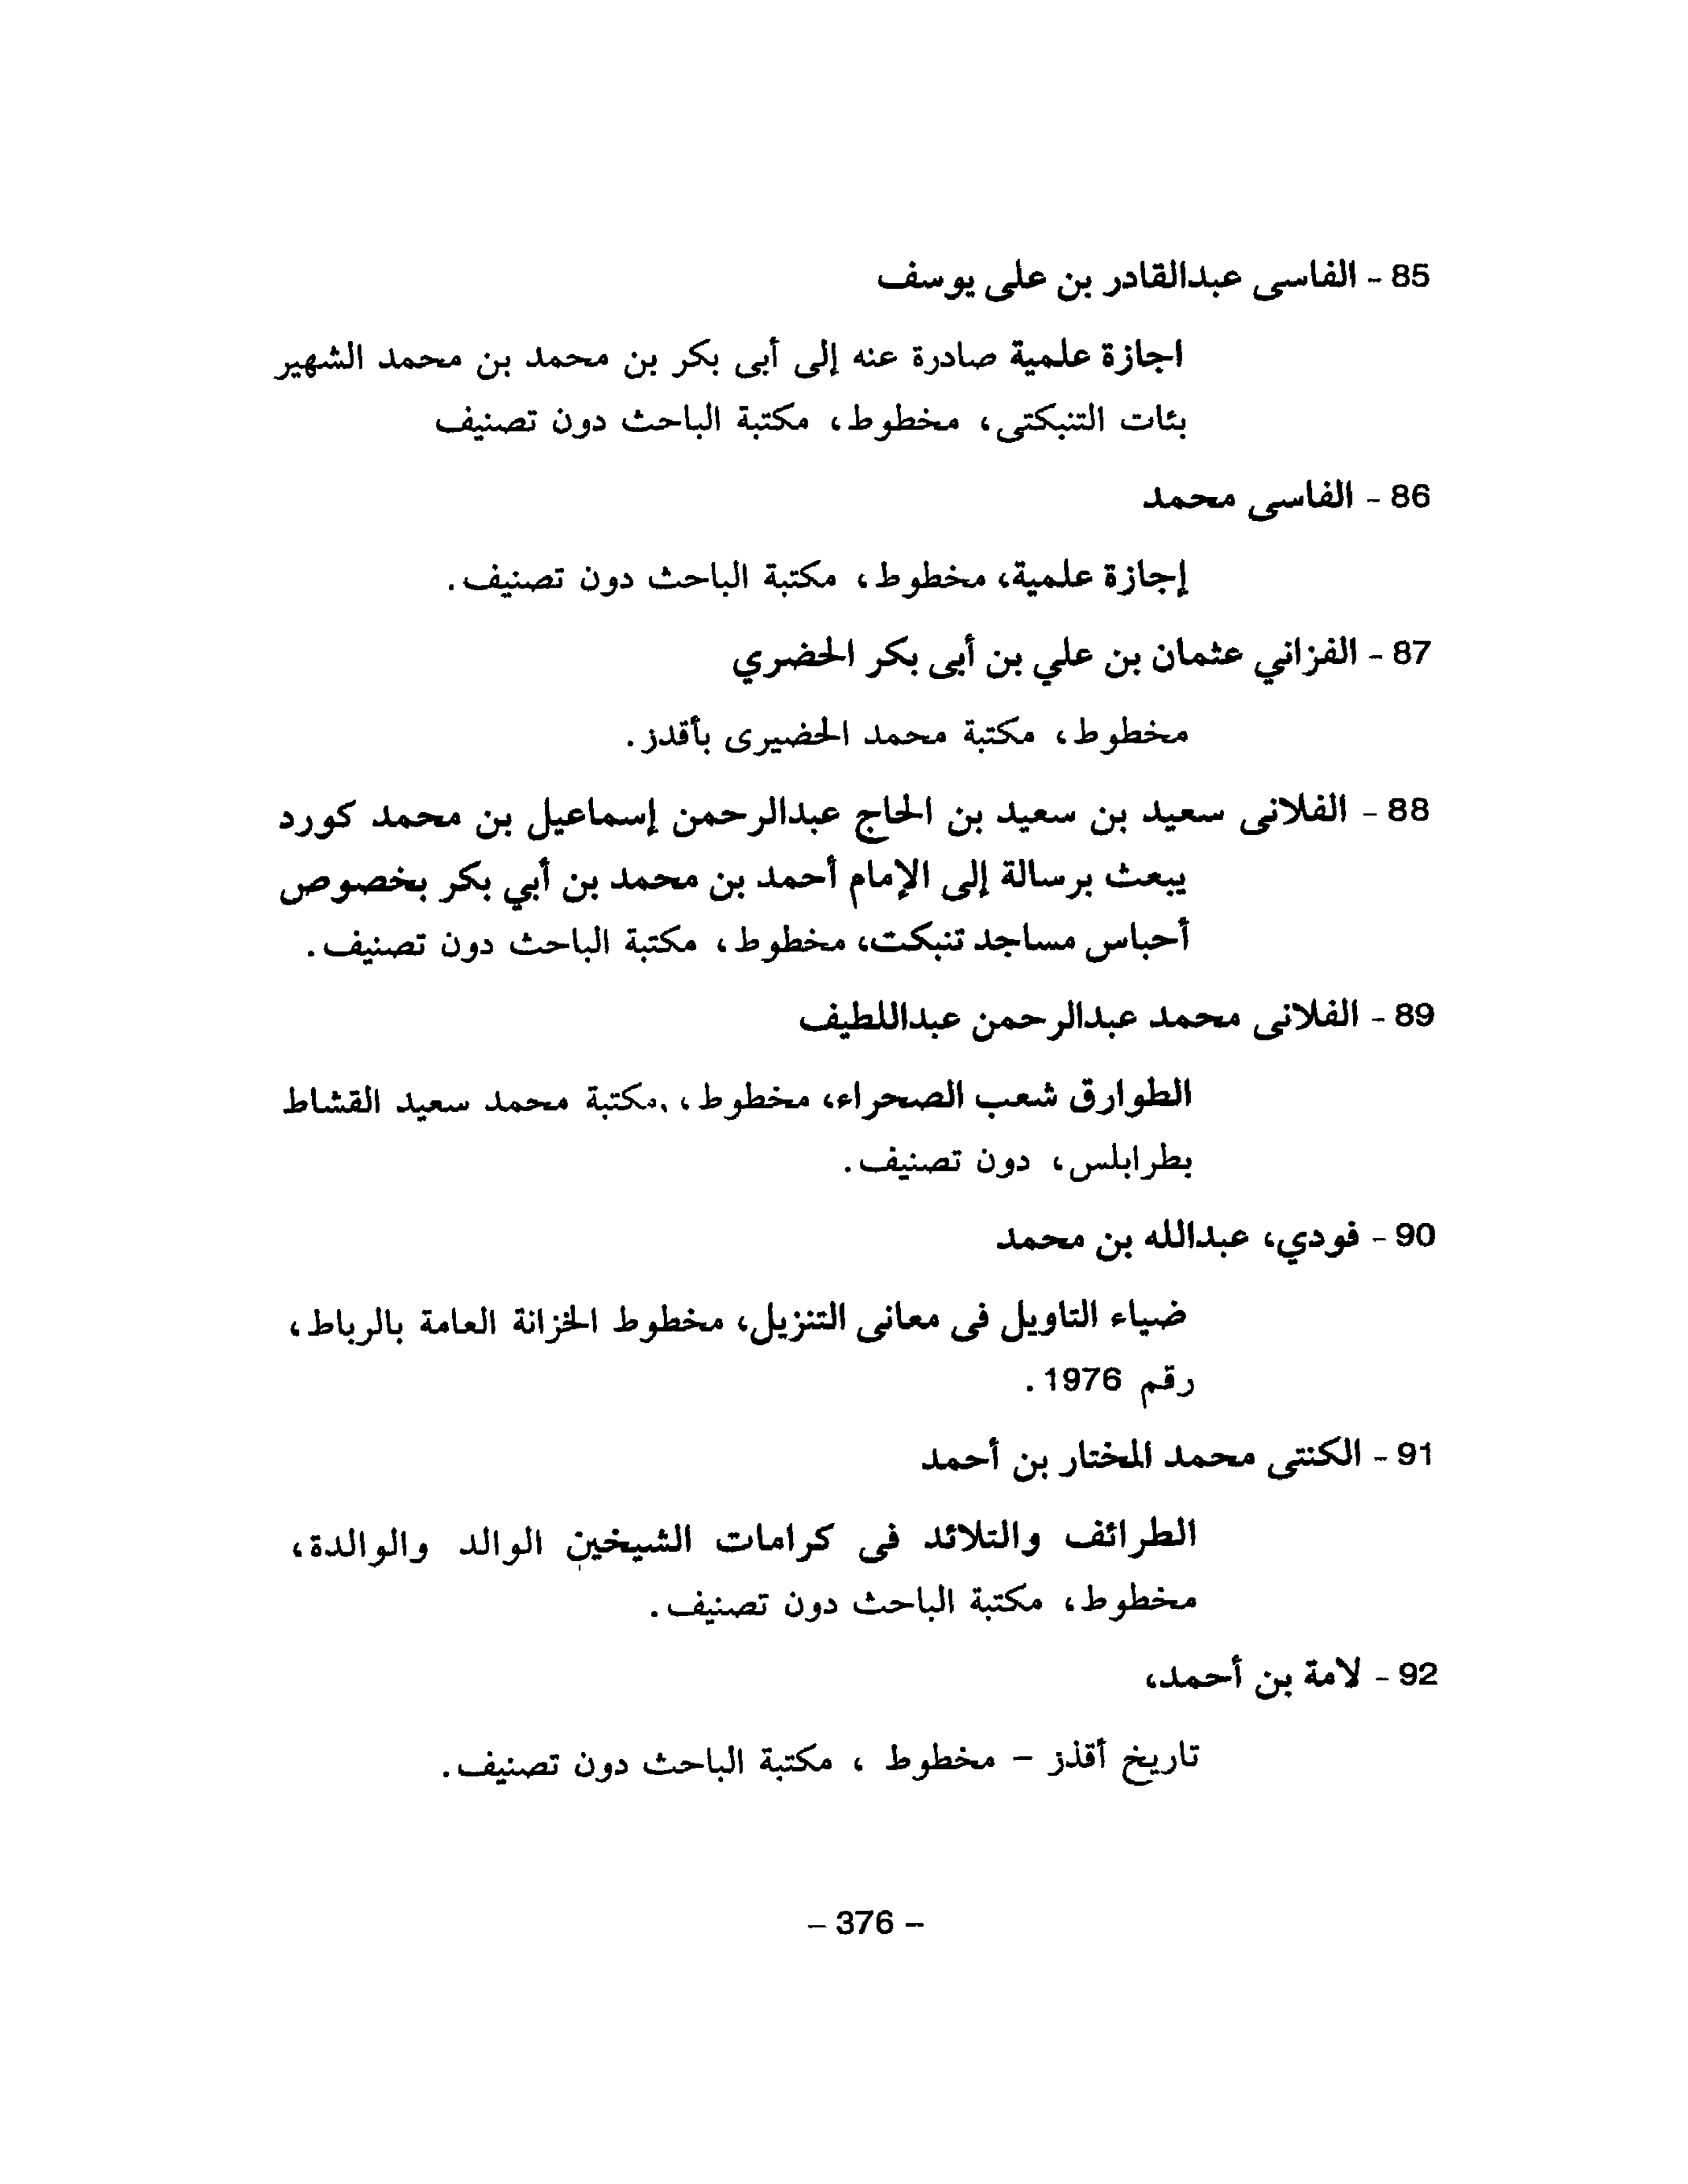 85 - الفاسى عبدالقادر بن على يوسف
اجازة علمية صادرة عنه إلى أبى بكر بن محمد بن محمد الشهير
بئات التنبكتى، مخطوط، مكتبة الباحث دون تصنيف
86 - الفاسى محمد
إجازة علمية، مخطوط، مكتبة الباحث دون تصنيف.
87 - الفزاني عثمان بن علي بن أبى بكر الحضري
مخطوط، مكتبة محمد الحضيرى بأقدز.
88 - الفلانى سعيد بن سعيد بن الحاج عبدالرحمن إسماعيل بن محمد كورد
يبعث برسالة إلى الإمام أحمد بن محمد بن أبي بكر بخصوص
أحباس مساجد تنبكت، مخطوط، مكتبة الباحث دون تصنيف.
89 - الفلانى محمد عبدالرحمن عبداللطيف
الطوارق شعب الصحراء، مخطوط، مكتبة محمد سعيد القشاط
بطرابلس، دون تصنيف.
90 - فودي، عبدالله بن محمد
ضياء التاويل فى معانى التنزيل، مخطوط الخزانة العامة بالرباط،
رقم 1976.
91 - الكنتى محمد المختار بن أحمد
الطرائف والتلائد فى كرامات الشيخين الوالد والوالدة،
مخطوط، مكتبة الباحث دون تصنيف.
92 - لامة بن أحمد،
تاريخ أقذز - مخطوط ، مكتبة الباحث دون تصنيف.
- 376 -